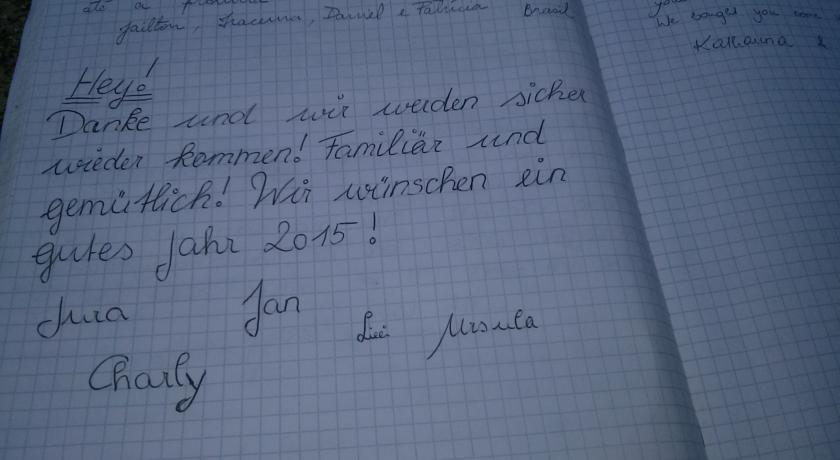 até a
Jailton, Iracema, Daniel e Fabricia Brasil
Hey!
Danke und wir werden sicher
wieder kommen! Familiär und
gemütlich! Wir wünschen ein
gutes Jahr 2015!
Jura Jan
Ursula
Charly
We
you come
Katharina &